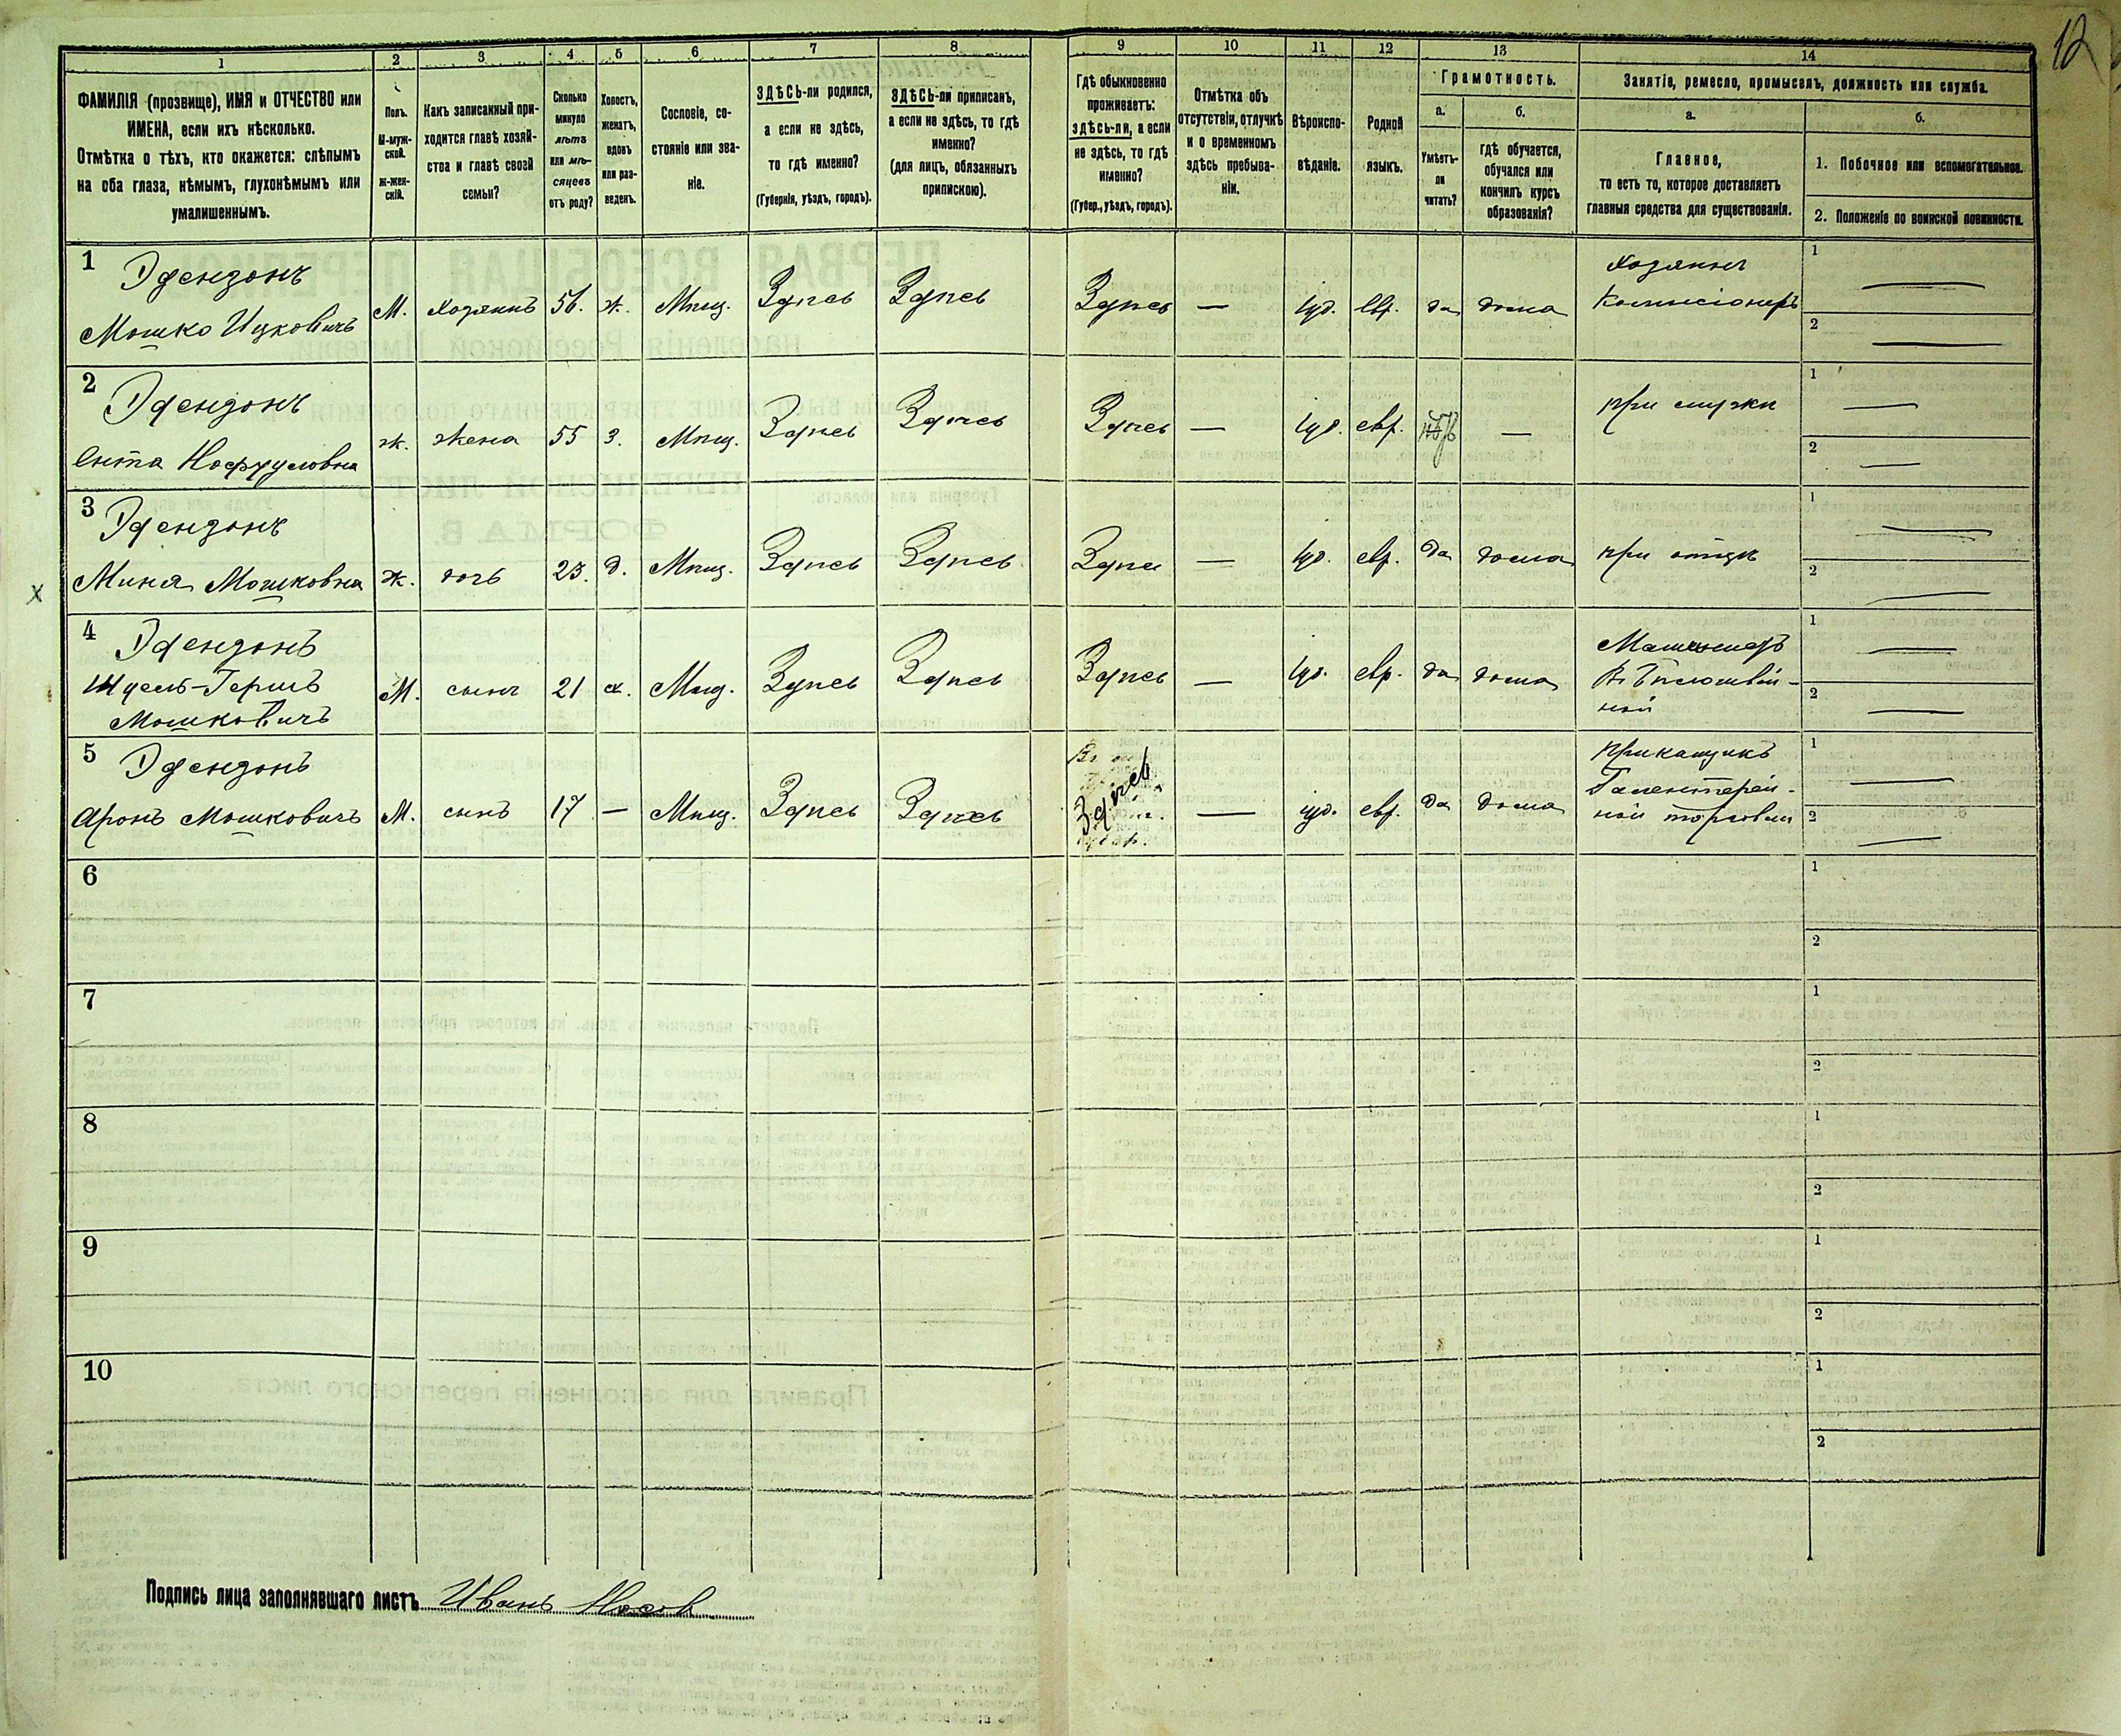 12
1 2 3 4 5 6 7 8 9 10 11 12 13 14
ФАМИЛІЯ (прозвище), ИМЯ и ОТЧЕСТВО или
ИМЕНА, если ихъ нѣсколько.
Отмѣтка о тѣхъ, кто окажется: слѣпымъ
на оба глаза, нѣмымъ, глухонѣмымъ или
умалишеннымъ.
Полъ.
М-муж-
ской.
ж-жен-
скій.
Какъ записанный при-
ходится главѣ хозяй-
ства и главѣ своей
семьи?
Сколько
минуло
лѣтъ
или мѣ-
сяцевъ
отъ роду?
Холостъ,
женатъ,
вдовъ
или раз-
веденъ.
Сословіе, со-
стояніе или зва-
ніе.
ЗДѢСЬ-ли родился,
а если не здѣсь,
то гдѣ именно?
(Губернія, уѣздъ, городъ).
ЗДѢСЬ-ли приписанъ,
а если не здѣсь, то гдѣ
именно?
(для лицъ, обязанныхъ
припискою).
Гдѣ обыкновенно
проживаетъ:
здѣсь-ли, а если
не здѣсь, то гдѣ
именно?
(Губер., уѣздъ, городъ).
Отмѣтка объ
отсутствіи, отлучкѣ
и о временномъ
здѣсь пребыва-
ніи.
Вѣроиспо-
вѣданіе.
Родной
языкъ.
Грамотность.
а.
Умѣетъ-
ли
читать?
б.
гдѣ обучается,
обучался или
кончилъ курсъ
образованія?
Занятіе, ремесло, промыселъ, должность или служба.
а.
Главное,
то есть то, которое доставляетъ
главныя средства для существованія.
б.
1. Побочное или вспомогательное.
2. Положеніе по воинской повинности.
1 Эфензонъ
Мошко Ицковичъ М. хозяинъ 56. ж. Мѣщ. Здѣсь Здѣсь Здѣсь — іуд. евр. да дома
Хозяинъ
Комисіонеръ
1 —
2 —
2 Эфензонъ
Ента Нафтуловна ж. жена 55 з. Мѣщ. Здѣсь Здѣсь Здѣсь — іуд. евр. —
при мужѣ
1 —
2 —
3 Эфензонъ
Миня Мошковна ж. дочь 23. д. Мѣщ. Здѣсь Здѣсь Здѣсь — іуд. евр. да дома
при отцѣ
1 —
2 —
x
4 Эфензонъ
Гершъ
Мошковичъ М. сынъ 21 х. Мѣщ. Здѣсь Здѣсь Здѣсь — іуд. евр. да дома
1 —
2 —
5 Эфензонъ
Аронъ Мошковичъ М. сынъ 17 — Мѣщ. Здѣсь Здѣсь Здѣсь — іуд. евр. да дома
Прикащикъ
Галентерей-
ной торговли
1 —
2 —
6
1
2
7
1
2
8
1
2
9
1
2
10
1
2
Подпись лица заполнявшаго листъ Иванъ Носов